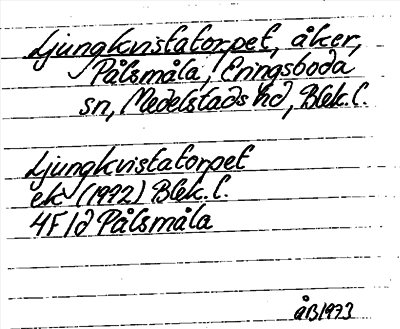 Ljungkvistatorpet, åker,
Pålsmåla, Eringsboda
sn, Medelstads hd, Blek. l.
Ljungkvistatorpet
ek (1992) Blek. l.
4F 1d Pålsmåla
åB1973